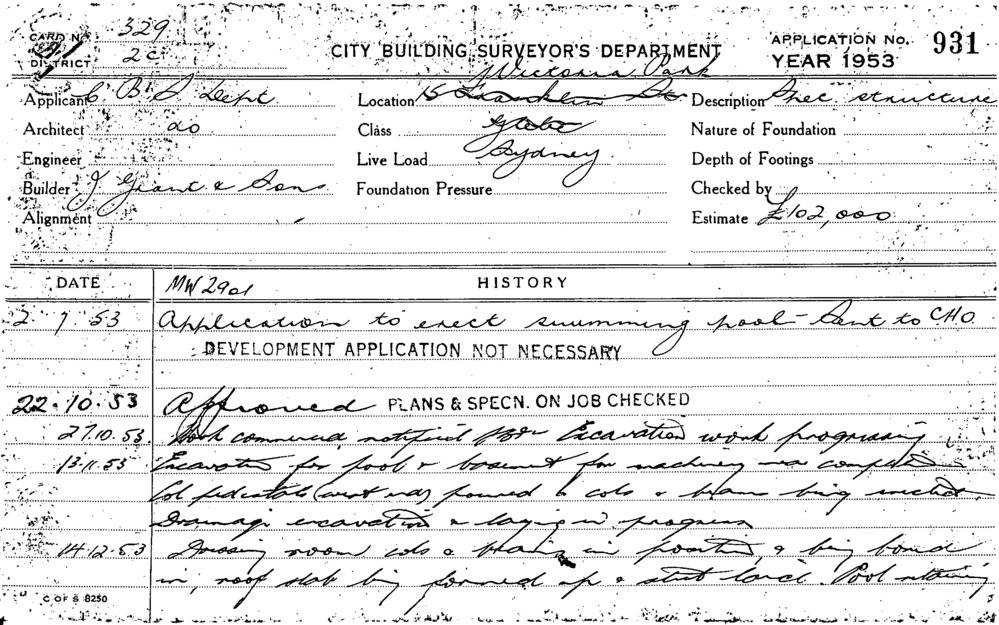 CARD No. 329
DISTRICT 2C
CITY BUILDING SURVEYOR'S DEPARTMENT
APPLICATION No. 931
YEAR 1953
Victoria Park
Applicant C B S Dept Location 15 Franklin St Description Spec structure
Architect do Class Glebe Nature of Foundation
Engineer Live Load Sydney Depth of Footings
Builder J Grant & Sons Foundation Pressure Checked by
Alignment Estimate £102,000
DATE HISTORY
2 7 53 Application to erect swimming pool - Sent to C.H.O.
DEVELOPMENT APPLICATION NOT NECESSARY
22.10.53 Approved PLANS & SPECN. ON JOB CHECKED
27.10.53 Work commenced notified Excavation work progressing
13.11.53 Excavation for pool & basement for machinery
poured & cols & beams being erected.
Drainage excavation & laying in progress
14.12.53 Dressing room cols & beams in position, & being boxed
in, roof slab being formed up & steel laid. Pool retaining
C OF S 8250